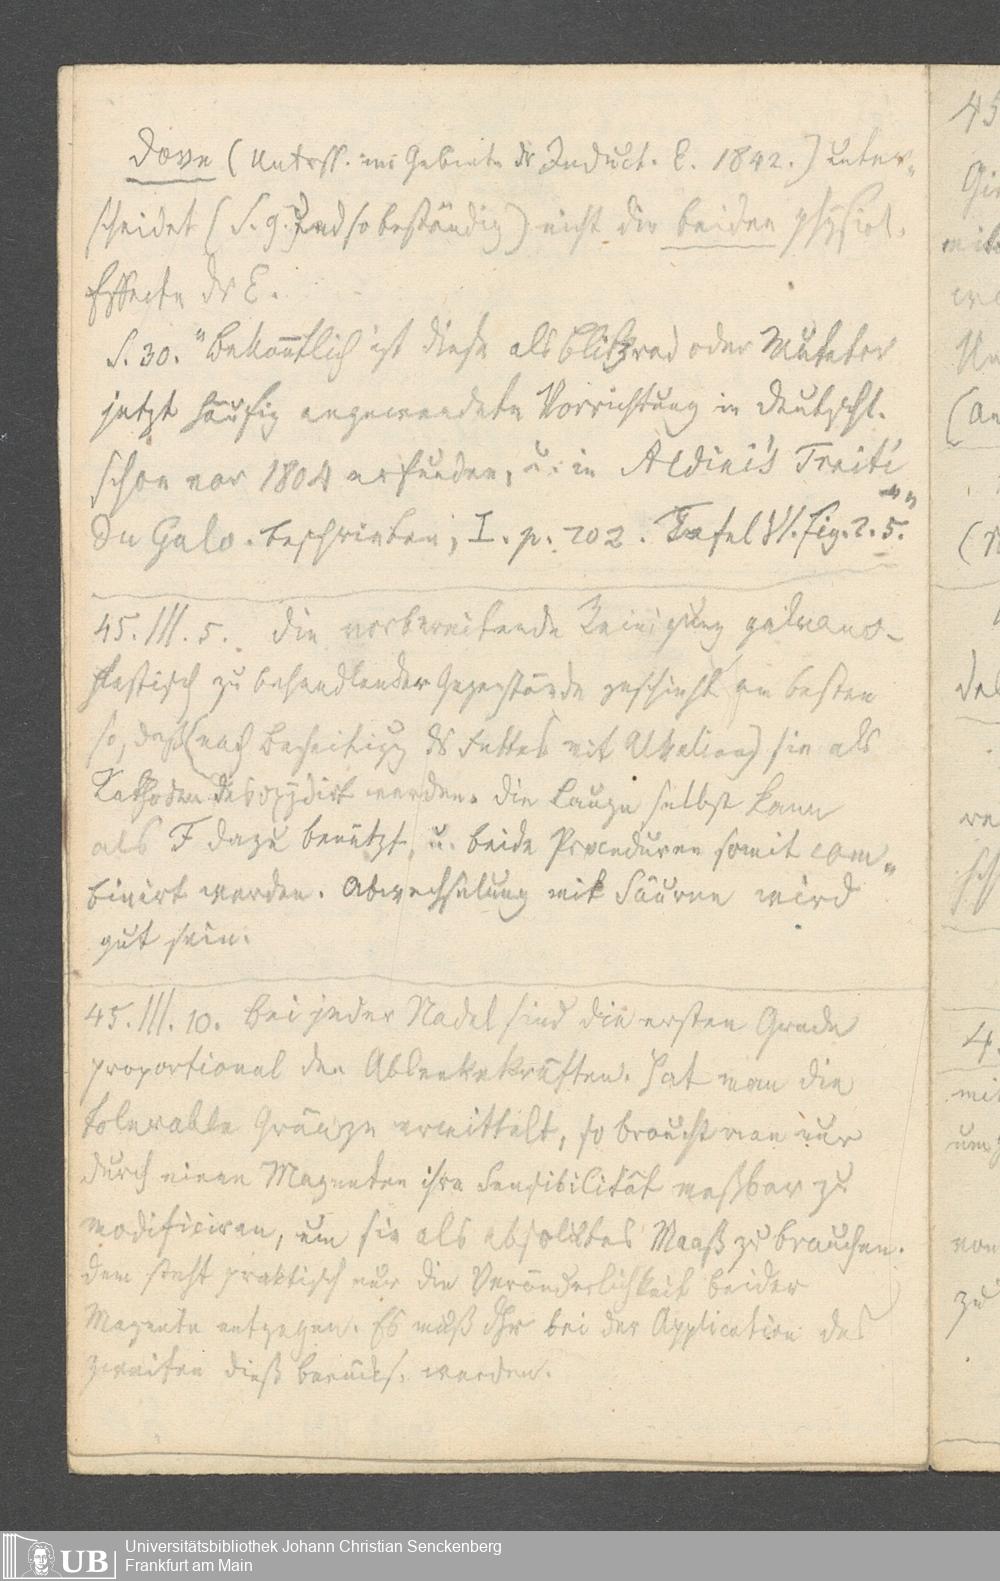 Dove (Unterss. im Gebiete dr Induct. E. 1842.) unter-
scheidet (S. 9. und so beständig) nicht die beiden physiol.
Effecte dr E.
S. 30. "Bekanntlich ist diese als Blitzrad oder Mutator
jetzt häufig angewendete Vorrichtung in Deutschl.
schon vor 1804 erfunden, u. in Aldini's Traité
du Galv. beschrieben, I. p. 202. Tafel VI. Fig. 2. 5."
45. III. 5. Die vorbereitende Reinigung galvano-
plastisch zu behandlender Gegenstände geschieht am besten
so, daß (nach Beseitigg ds Fettes mit Alkalien) sie als
Kathoden desoxydirt werden. Die Lauge selbst kann
als F dazu benützt, u. beide Proceduren somit com-
binirt werden. Abwechselung mit Säuren wird
gut sein.
45. III. 10. Bei jeder Nadel sind die ersten Grade
proportional den Ablenkekräften. Hat man die
tolerable Gränze ermittelt, so braucht man nur
durch einen Magneten ihre Sensibilität meßbar zu
modificiren, um sie als absolutes Maaß zu brauchen.
Dem steht praktisch nur die Veränderlichkeit beider
Magnete entgegen. Es muß dhr bei der Application des
zweiten dieß berücks. werden.
Universitätsbibliothek Johann Christian Senckenberg
Frankfurt am Main
UB